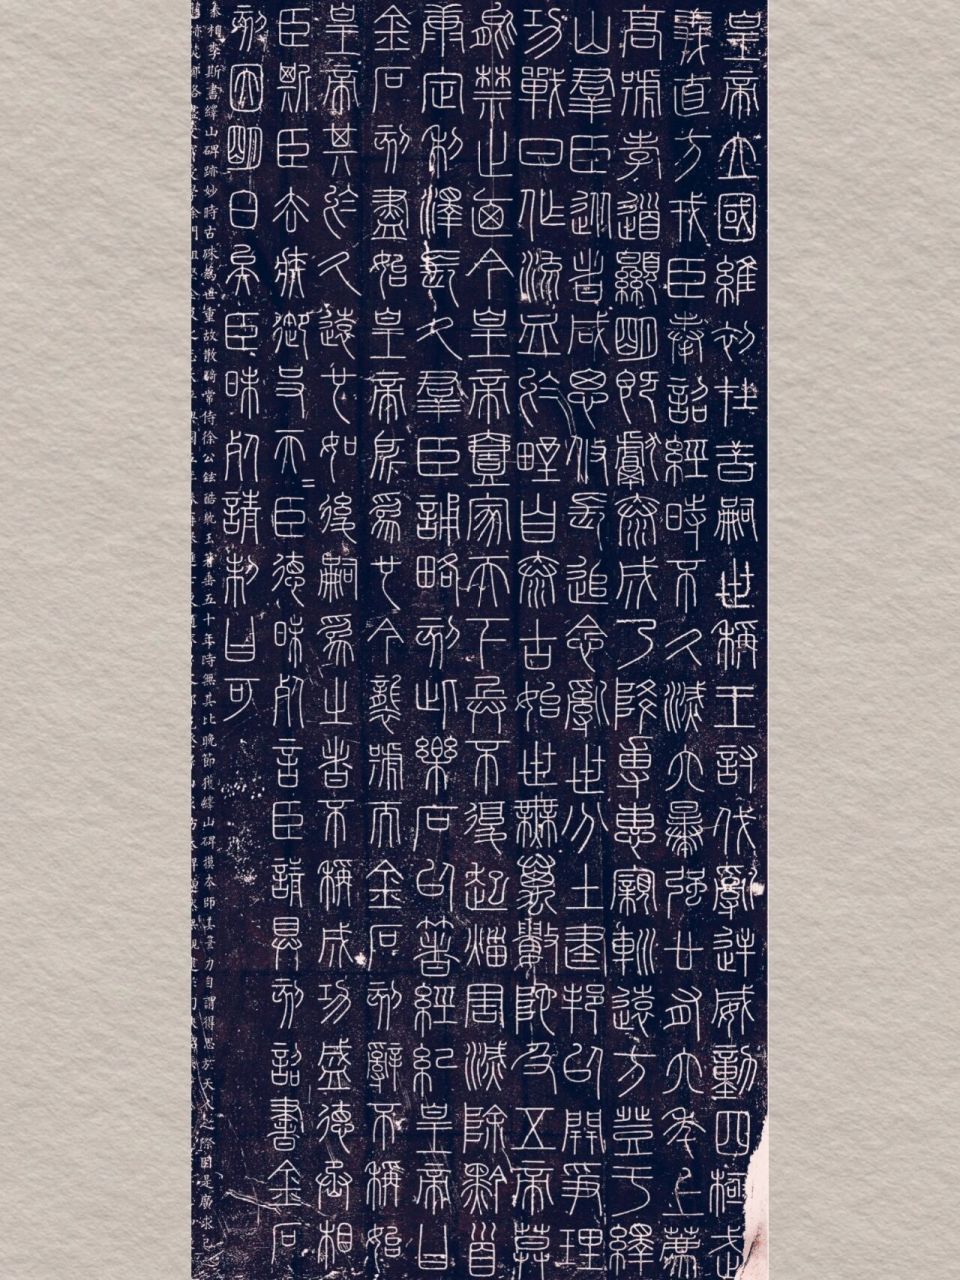 皇帝立國維初在昔嗣世稱王討伐亂逆威動四極武
義直方戎臣奉詔經時不久滅六暴強廿有六年上薦
高號孝道顯明既獻泰成乃降專惠窺輧遠方登于繹
山羣臣從者咸思攸長追念亂世分土建邦以開爭理
功戰日作流血於野自泰古始世無萬數陀及五帝莫
能禁止迺今皇帝壹家天下兵不復起災害滅除黔首
康定利澤長久羣臣誦略刻此樂石以著經紀皇帝曰
金石刻盡始皇帝所為也今襲號而金石刻辭不稱始
皇帝其於久遠也如後嗣為之者不稱成功盛德丞相
臣斯臣去疾御史夫=臣德昧死言臣請具刻詔書金石
刻因明白矣臣昧死請制曰可
秦相李斯書繹山碑跡妙時古殊為世重故散騎常侍徐公鉉酷耽玉箸垂五十年時無其比晚節獲繹山碑摸本師其筆力自謂得思於天人之際因是廣求己